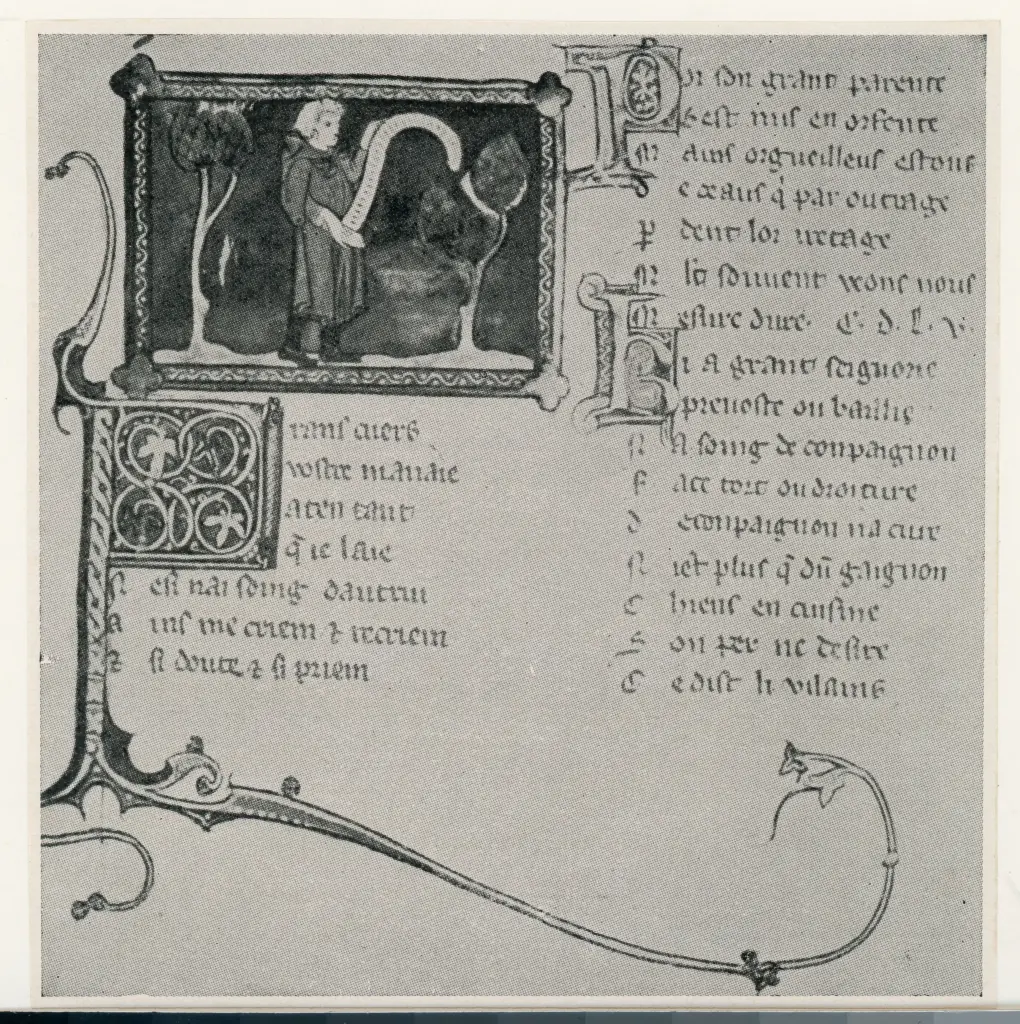 rans cuers
vostre manaie
aten tant
q̄ ie laie
N est nai soing dautrui
A ins me criem ⁊ recriem
⁊ si doute ⁊ si priem
Por son grant parente
Sest mis en orfente
M ains orgueilleus estous
e ceaus q̇ par outrage
P dent lor
M lt souvent veons nous
M esure dure. C. d. l. v.
Si a grant seignorie
prevoste ou baillie
N a soing de conpaignon
F ace tort ou droiture
D econpaignon na cure
N ient plus q̄ dū gaignon
C hiens en cuisine
S on per ne desire
C e dist li vilains